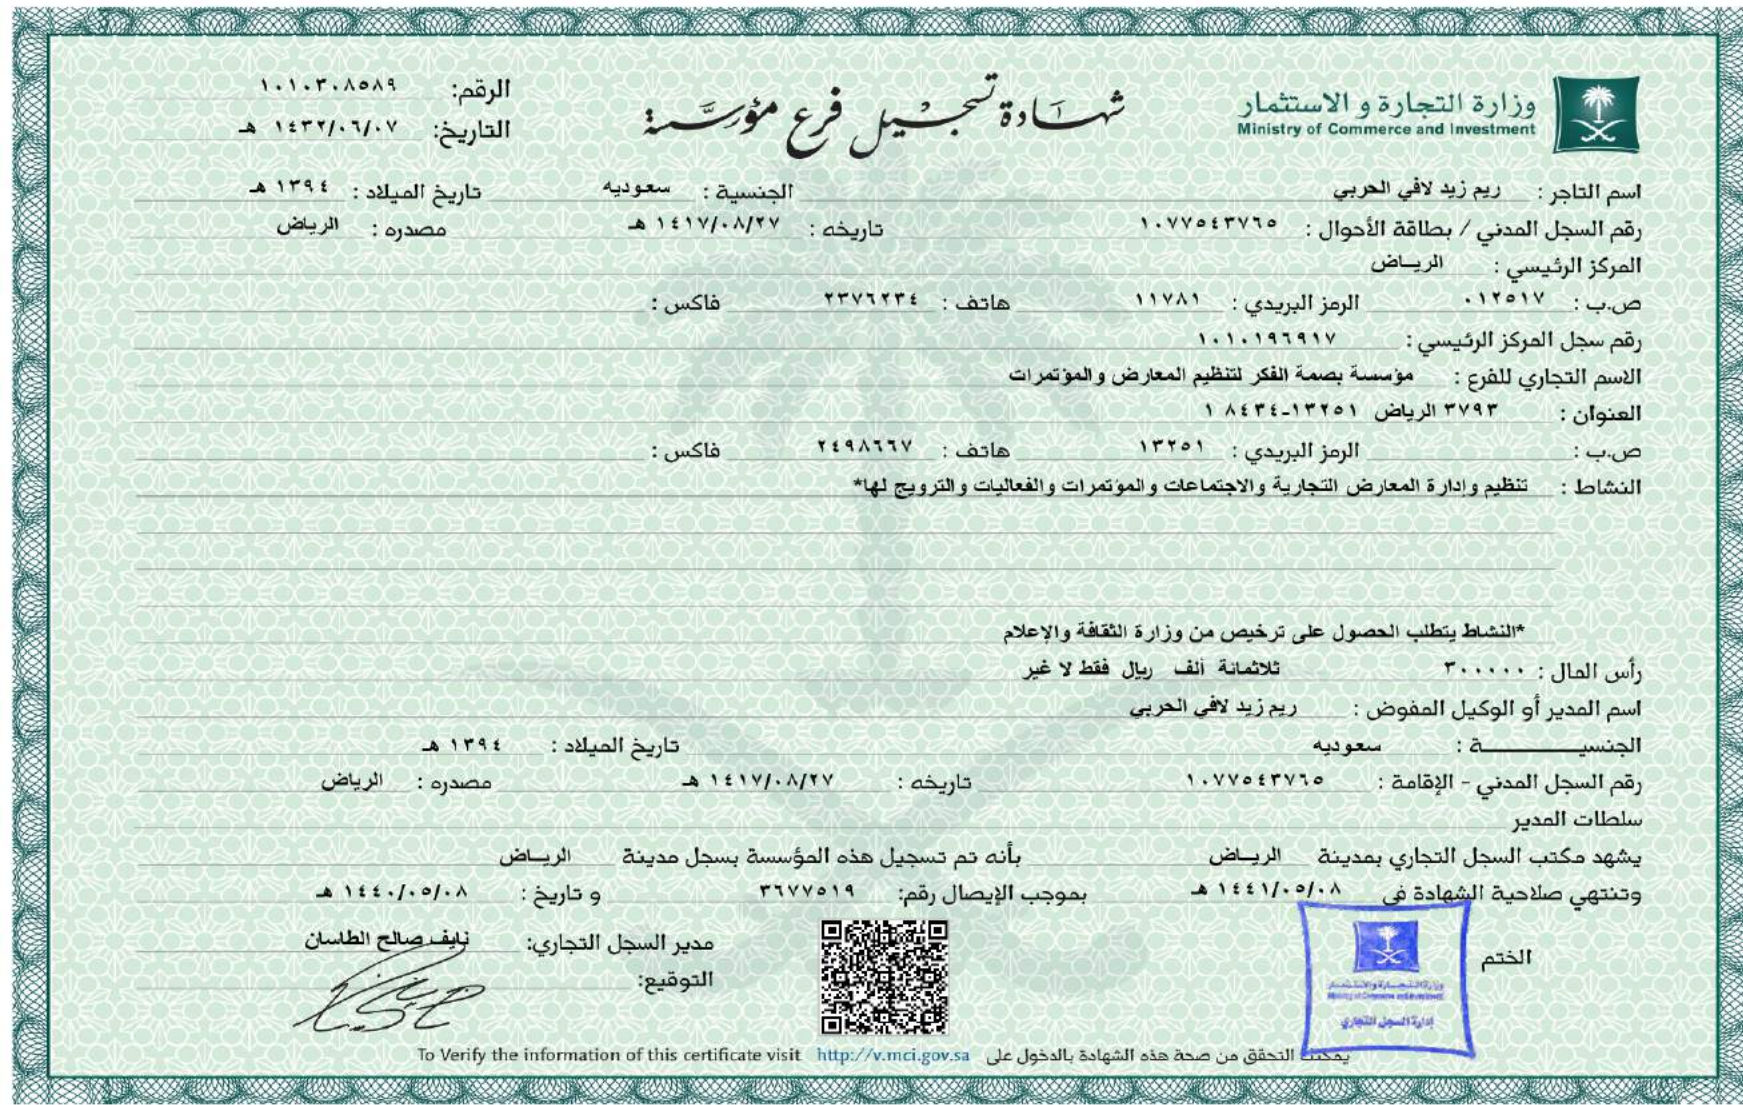 وزارة التجارة و الاستثمار
Ministry of Commerce and Investment
شهادة تسجيل فرع مؤسسة
الرقم: ١٠١٠٣٠٨٥٨٩
التاريخ: ١٤٣٢/٠٦/٠٧ هـ
اسم التاجر : ريم زيد لافي الحربي الجنسية : سعوديه تاريخ الميلاد : ١٣٩٤ هـ
رقم السجل المدني / بطاقة الأحوال : ١٠٧٧٥٤٣٧٦٥ تاريخه : ١٤١٧/٠٨/٢٧ هـ مصدره : الرياض
المركز الرئيسي : الريــاض
ص.ب : ٠١٢٥١٧ الرمز البريدي : ١١٧٨١ هاتف : ٢٣٧٦٢٣٤ فاكس :
رقم سجل المركز الرئيسي : ١٠١٠١٩٦٩١٧
الاسم التجاري للفرع : مؤسسة بصمة الفكر لتنظيم المعارض والمؤتمرات
العنوان : ٣٧٩٣ الرياض ١٣٢٥١-٨٤٣٤ ١
ص.ب : الرمز البريدي : ١٣٢٥١ هاتف : ٢٤٩٨٦٦٧ فاكس :
النشاط : تنظيم وإدارة المعارض التجارية والاجتماعات والمؤتمرات والفعاليات والترويج لها*
*النشاط يتطلب الحصول على ترخيص من وزارة الثقافة والإعلام
رأس المال : ٣٠٠٠٠٠ ثلاثمائة ألف ريال فقط لا غير
اسم المدير أو الوكيل المفوض : ريم زيد لافي الحربي
الجنسيــــــــة : سعوديه تاريخ الميلاد : ١٣٩٤ هـ
رقم السجل المدني - الإقامة : ١٠٧٧٥٤٣٧٦٥ تاريخه : ١٤١٧/٠٨/٢٧ هـ مصدره : الرياض
سلطات المدير
يشهد مكتب السجل التجاري بمدينة الريــاض بأنه تم تسجيل هذه المؤسسة بسجل مدينة الريــاض
وتنتهي صلاحية الشهادة في ١٤٤١/٠٥/٠٨ هـ بموجب الإيصال رقم: ٣٦٧٧٥١٩ و تاريخ : ١٤٤٠/٠٥/٠٨ هـ
الختم
مدير السجل التجاري: نايف صالح الطاسان
التوقيع:
وزارة التجارة والاستثمار
Ministry of Commerce and Investment
إدارة السجل التجاري
يمكنك التحقق من صحة هذه الشهادة بالدخول على http://v.mci.gov.sa To Verify the information of this certificate visit